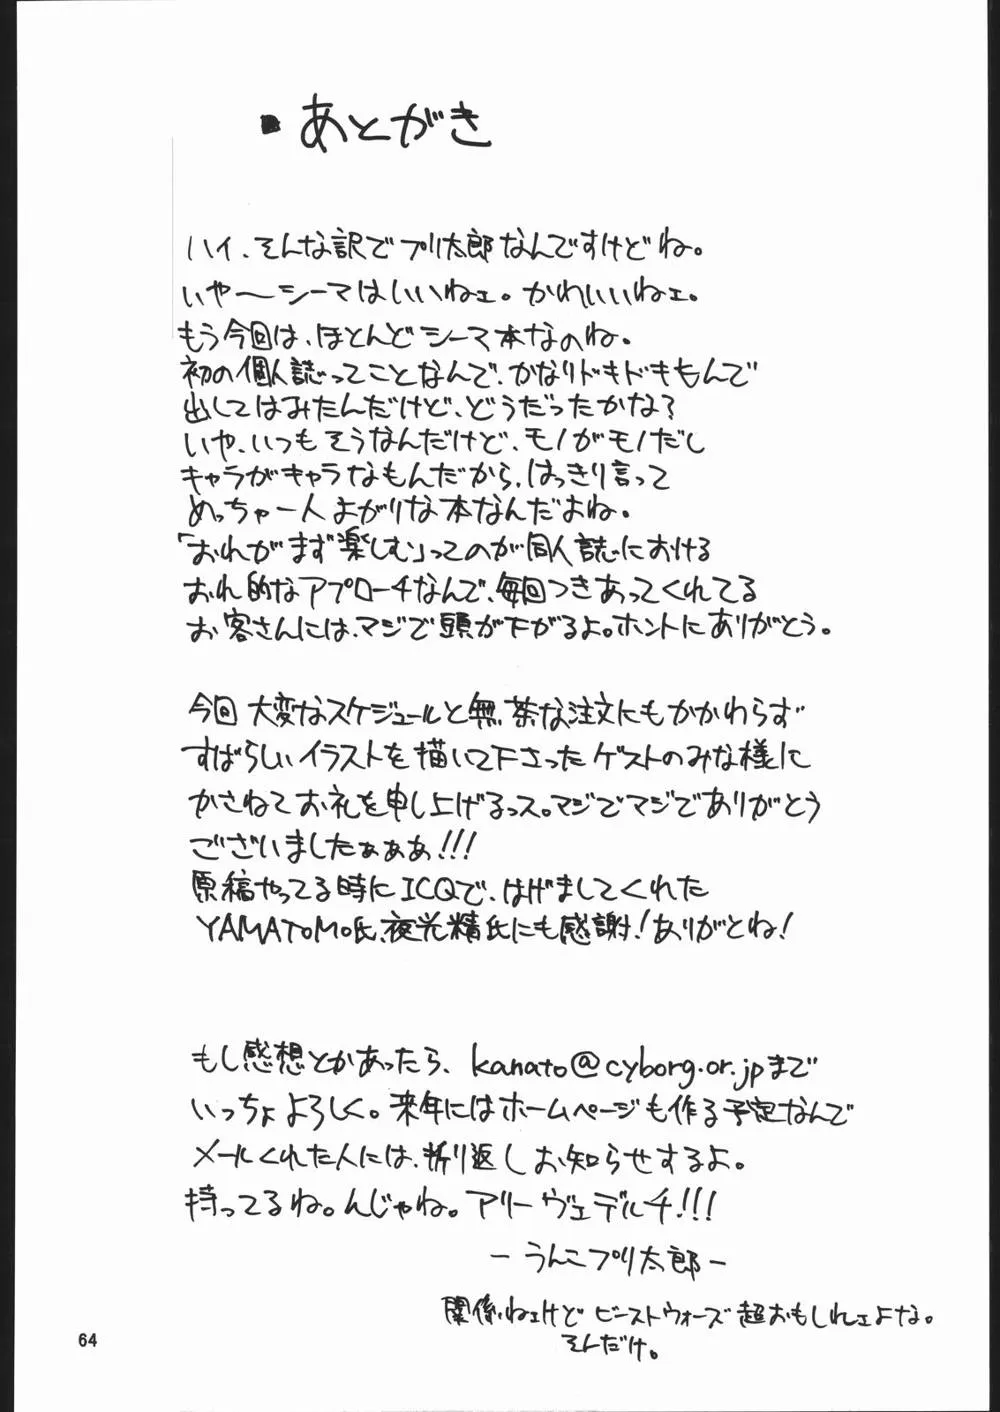 ・あとがき
ハイ、そんな訳でプリ太郎なんですけどね。
いや〜シーマはいいねェ。かわいいねェ。
もう今回は、ほとんどシーマ本なのね。
初の個人誌ってことなんで、かなりドキドキもんで
出してはみたんだけど、どうだったかな？
いや、いつもそうなんだけど、モノがモノだし
キャラがキャラなもんだから、はっきり言って
めっちゃ一人よがりな本なんだよね。
「おれがまず楽しむ」ってのが同人誌における
おれ的なアプローチなんで、毎回つきあってくれてる
お客さんには、マジで頭が下がるよ。ホントにありがとう。
今回大変なスケジュールと無茶な注文にもかかわらず
すばらしいイラストを描いて下さったゲストのみな様に
かさねてお礼を申し上げるっス。マジでマジでありがとう
ございましたぁぁぁ!!!
原稿やってる時にICQで、はげましてくれた
YAMATOMO氏、夜光精氏にも感謝！ありがとね！
もし感想とかあったら、kanato@cyborg.or.jpまで
いっちょよろしく。来年にはホームページも作る予定なんで
メールくれた人には、折り返しお知らせするよ。
待ってるね。んじゃね。アリーヴェデルチ!!!
－うんこプリ太郎－
関係ねェけどビーストウォーズ超おもしれェよな。
そんだけ。
64